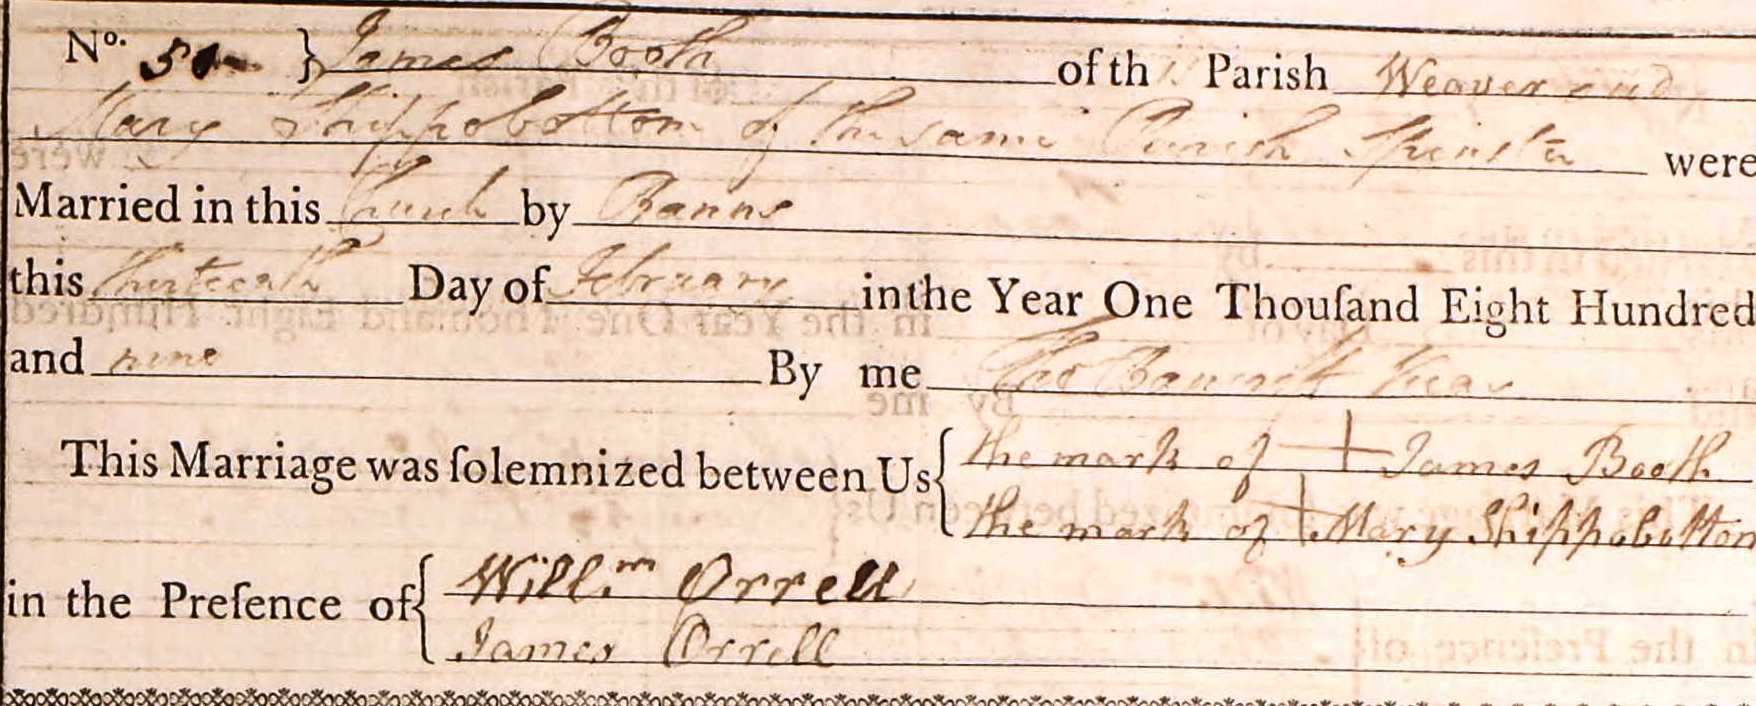 No. 50 } James Booth of this Parish Weaver and
Mary Shippobottom of the same Parish Spinster were
Married in this Church by Banns
this thirteenth Day of February in the Year One Thouſand Eight Hundred
and nine By me Thos Bancroft Vicar
This Marriage was ſolemnized between Us { the mark of + James Booth
the mark of + Mary Shippobottom
in the Preſence of { Willm Orrell
James Orrell